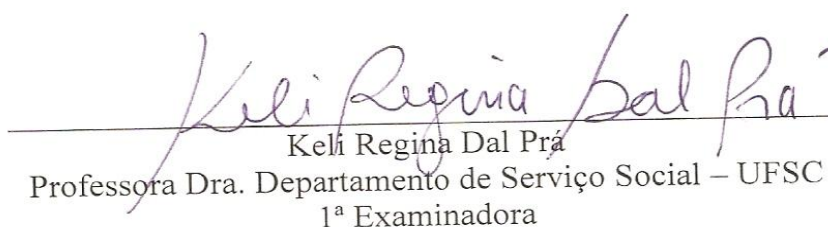 Keli Regina Dal Prá
Keli Regina Dal Prá
Professora Dra. Departamento de Serviço Social – UFSC
1ª Examinadora